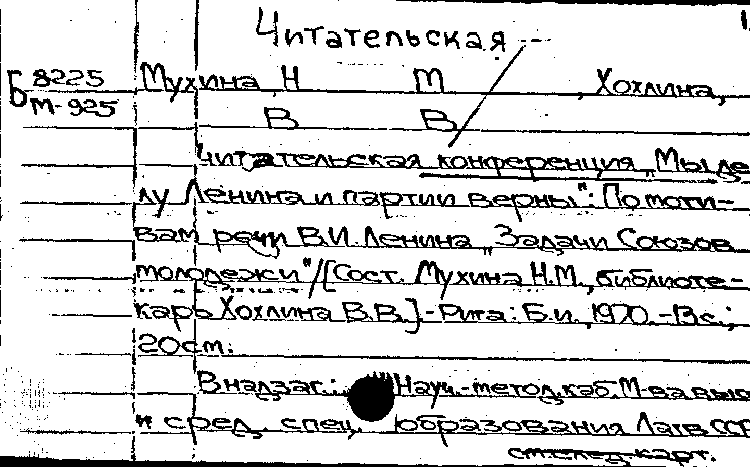 Читательская ---
Б 8225 Мухина, Н М , Хохлина,
М-925 В В
Читательская конференция "Мы де
лу Ленина и партии верны": По моти-
вам речи В.И. Ленина "Задачи Союзов
молодежи"/[Сост. Мухина Н.М., библиоте-
карь Хохлина В.В.]-Рига: Б.и., 1970.-13с.;
20см.
В надзаг.: Науч.-метод. каб. М-ва выс
и сред. спец. образования Латв. ССР
см.след.карт.